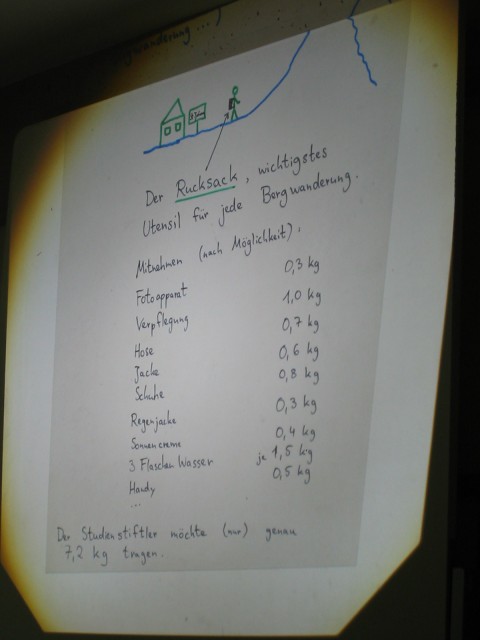 Bergwanderung ...)
Der Rucksack, wichtigstes
Utensil für jede Bergwanderung.
Mitnahmen (nach Möglichkeit):
Fotoapparat 0,3 kg
Verpflegung 1,0 kg
Hose 0,7 kg
Jacke 0,6 kg
Schuhe 0,8 kg
Regenjacke 0,3 kg
Sonnencreme 0,4 kg
3 Flaschen Wasser je 1,5 kg
Handy 0,5 kg
...
Der Studienstiftler möchte (nur) genau
7,2 kg tragen.